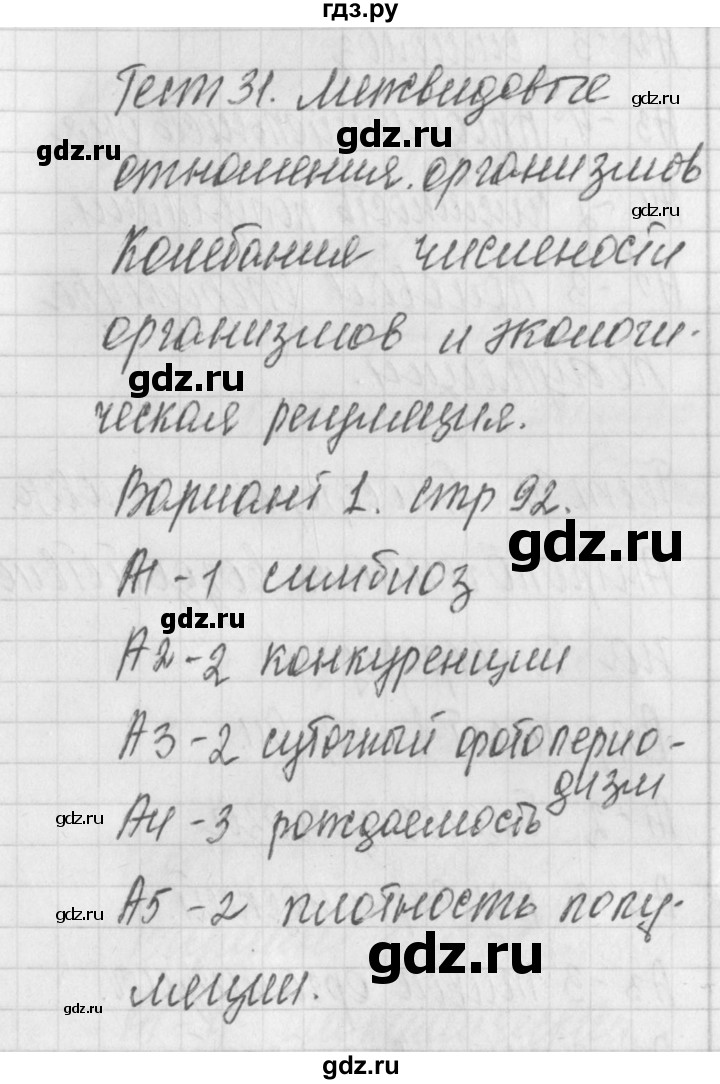 гдз.ру
Тест 31. Межвидовые
gdz.ru
gdz.ru
gdz.ru
отношения. организмов
gdz.ru
Колебания числености
организмов и экологи-
gdz.ru
gdz.ru
ческая регуляция.
Вариант 1. стр 92.
gdz.ru
А1-1 симбиоз
gdz.ru
А2-2 конкуренции
А3-2 суточный фотоперио-
дизм
gdz.ru
А4-3 рождаемость
gdz.ru
А5-2 плотность попу-
gdz.ru
ляции.
gdz.ru
gdz.ru